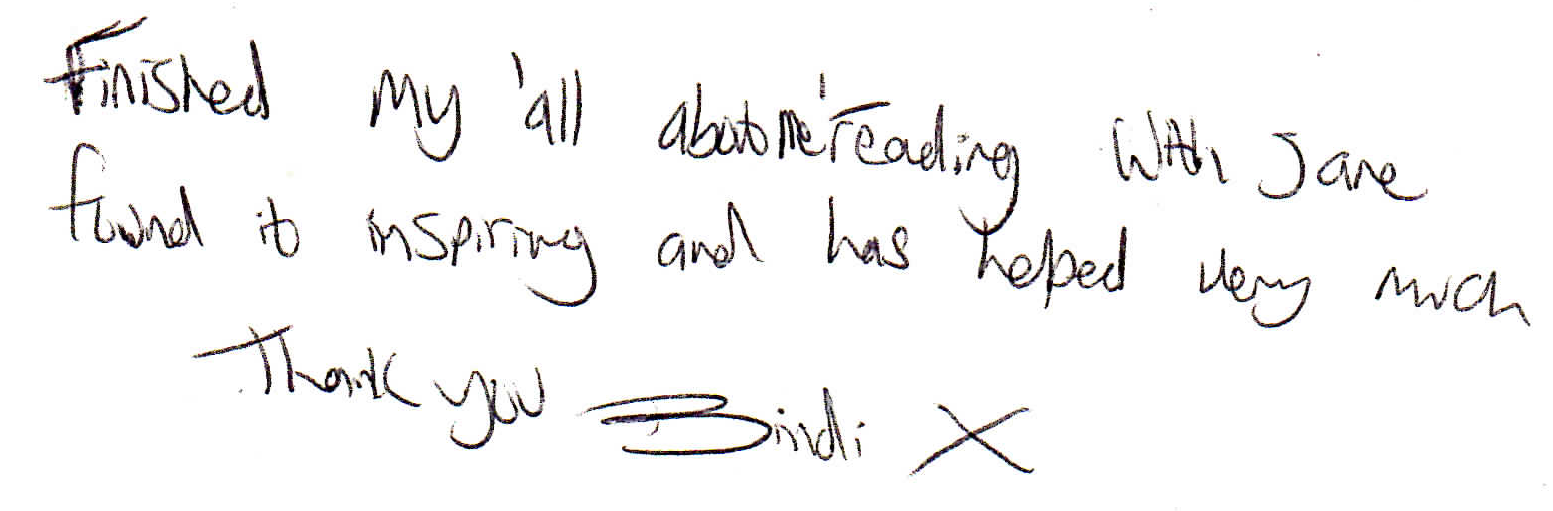 Finished My 'all about me' reading with Jane
found it inspiring and has helped very much
Thank you Bindi X